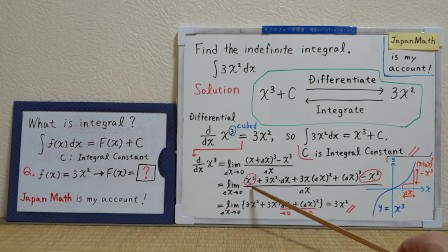 What is integral?
∫f(x)dx = F(x) + C
C : Integral Constant
Q. f(x) = 3x² → F(x) = ?
Japan Math is my account!
Find the indefinite integral.
∫3x²dx
JapanMath
is my
account!
Solution
x³ + C
Differentiate
Integrate
3x²
Differential
cubed
d/dx x³ = 3x², so ∫3x²dx = x³ + C,
C is Integral Constant.
d/dx x³ = lim Δx→0 (x+Δx)³ − x³ / Δx
= lim Δx→0 x³ + 3x²·Δx + 3x(Δx)² + (Δx)³ − x³ / Δx
= lim Δx→0 {3x² + 3x·Δx + (Δx)²} = 3x²
→0 →0
y
x
y = x³